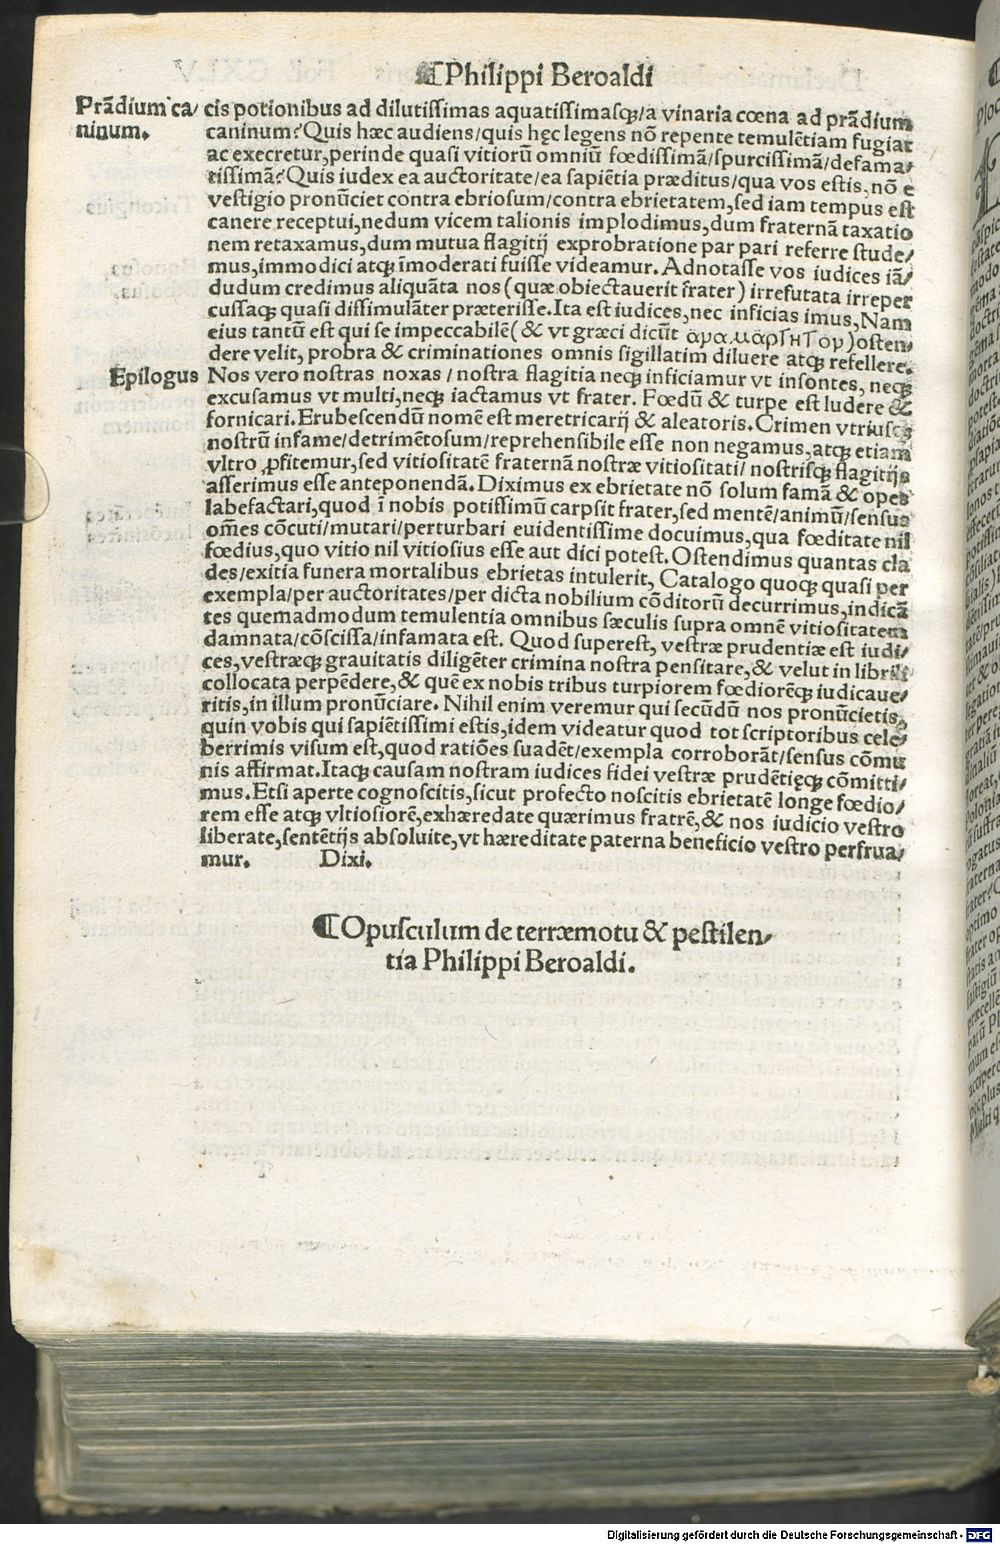 ¶Philippi Beroaldi
Prādium ca/
ninum.
cis potionibus ad dilutissimas aquatissimasqꝫ/a vinaria cœna ad prādium
caninum? Quis hæc audiens/quis hęc legens nō repente temulētiam fugiat
ac execretur,perinde quasi vitiorū omniū fœdissimā/spurcissimā/defama/
tissimā? Quis iudex ea auctoritate/ea sapiētia præditus/qua vos estis, nō e
vestigio pronūciet contra ebriosum/contra ebrietatem,sed iam tempus est
canere receptui,nedum vicem talionis implodimus,dum fraternā taxatio
nem retaxamus,dum mutua flagitij exprobratione par pari referre stude/
mus,immodici atqꝫ īmoderati fuisse videamur. Adnotasse vos iudices iā/
dudum credimus aliquāta nos (quæ obiectauerit frater) irrefutata irreper
cussaqꝫ quasi dissimulāter præterisse. Ita est iudices,nec inficias imus,Nam
eius tantū est qui se impeccabilē (& vt græci dicūt ἀμαμάρτητον) osten/
dere velit, probra & criminationes omnis sigillatim diluere atqꝫ refellere.
Epilogus
Nos vero nostras noxas / nostra flagitia neqꝫ inficiamur vt insontes, neqꝫ
excusamus vt multi,neqꝫ iactamus vt frater. Fœdū & turpe est ludere &
fornicari. Erubescendū nomē est meretricarij & aleatoris. Crimen vtriusqꝫ
nostrū infame/detrimētosum/reprehensibile esse non negamus,atqꝫ etiam
vltro ꝓfitemur,sed vitiositatē fraternā nostræ vitiositati/ nostrisqꝫ flagitijs
asserimus esse anteponendā. Diximus ex ebrietate nō solum famā & opes
labefactari,quod ī nobis potissimū carpsit frater,sed mentē/animū/sensus
om̄es cōcuti/mutari/perturbari euidentissime docuimus,qua fœditate nil
fœdius,quo vitio nil vitiosius esse aut dici potest. Ostendimus quantas cla
des/exitia funera mortalibus ebrietas intulerit, Catalogo quoqꝫ quasi per
exempla/per auctoritates/per dicta nobilium cōditorū decurrimus,indicā
tes quemadmodum temulentia omnibus sæculis supra omnē vitiositatem
damnata/cōscissa/infamata est. Quod superest, vestræ prudentiæ est iudi/
ces,vestræqꝫ grauitatis diligēter crimina nostra pensitare,& velut in librili
collocata perpēdere,& quē ex nobis tribus turpiorem fœdiorēqꝫ iudicaue/
ritis,in illum pronūciare. Nihil enim veremur qui secūdū nos pronūcietis,
quin vobis qui sapiētissimi estis,idem videatur quod tot scriptoribus cele/
berrimis visum est,quod ratiōes suadēt/exempla corroborāt/sensus cōmu
nis affirmat. Itaqꝫ causam nostram iudices fidei vestræ prudētięqꝫ cōmitti/
mus. Etsi aperte cognoscitis,sicut profecto noscitis ebrietatē longe fœdio/
rem esse atqꝫ vltiosiorē,exhæredate quærimus fratrē,& nos iudicio vestro
liberate,sentētijs absoluite,vt hæreditate paterna beneficio vestro perfrua/
mur. Dixi.
¶Opusculum de terræmotu & pestilen/
tia Philippi Beroaldi.
Digitalisierung gefördert durch die Deutsche Forschungsgemeinschaft - DFG